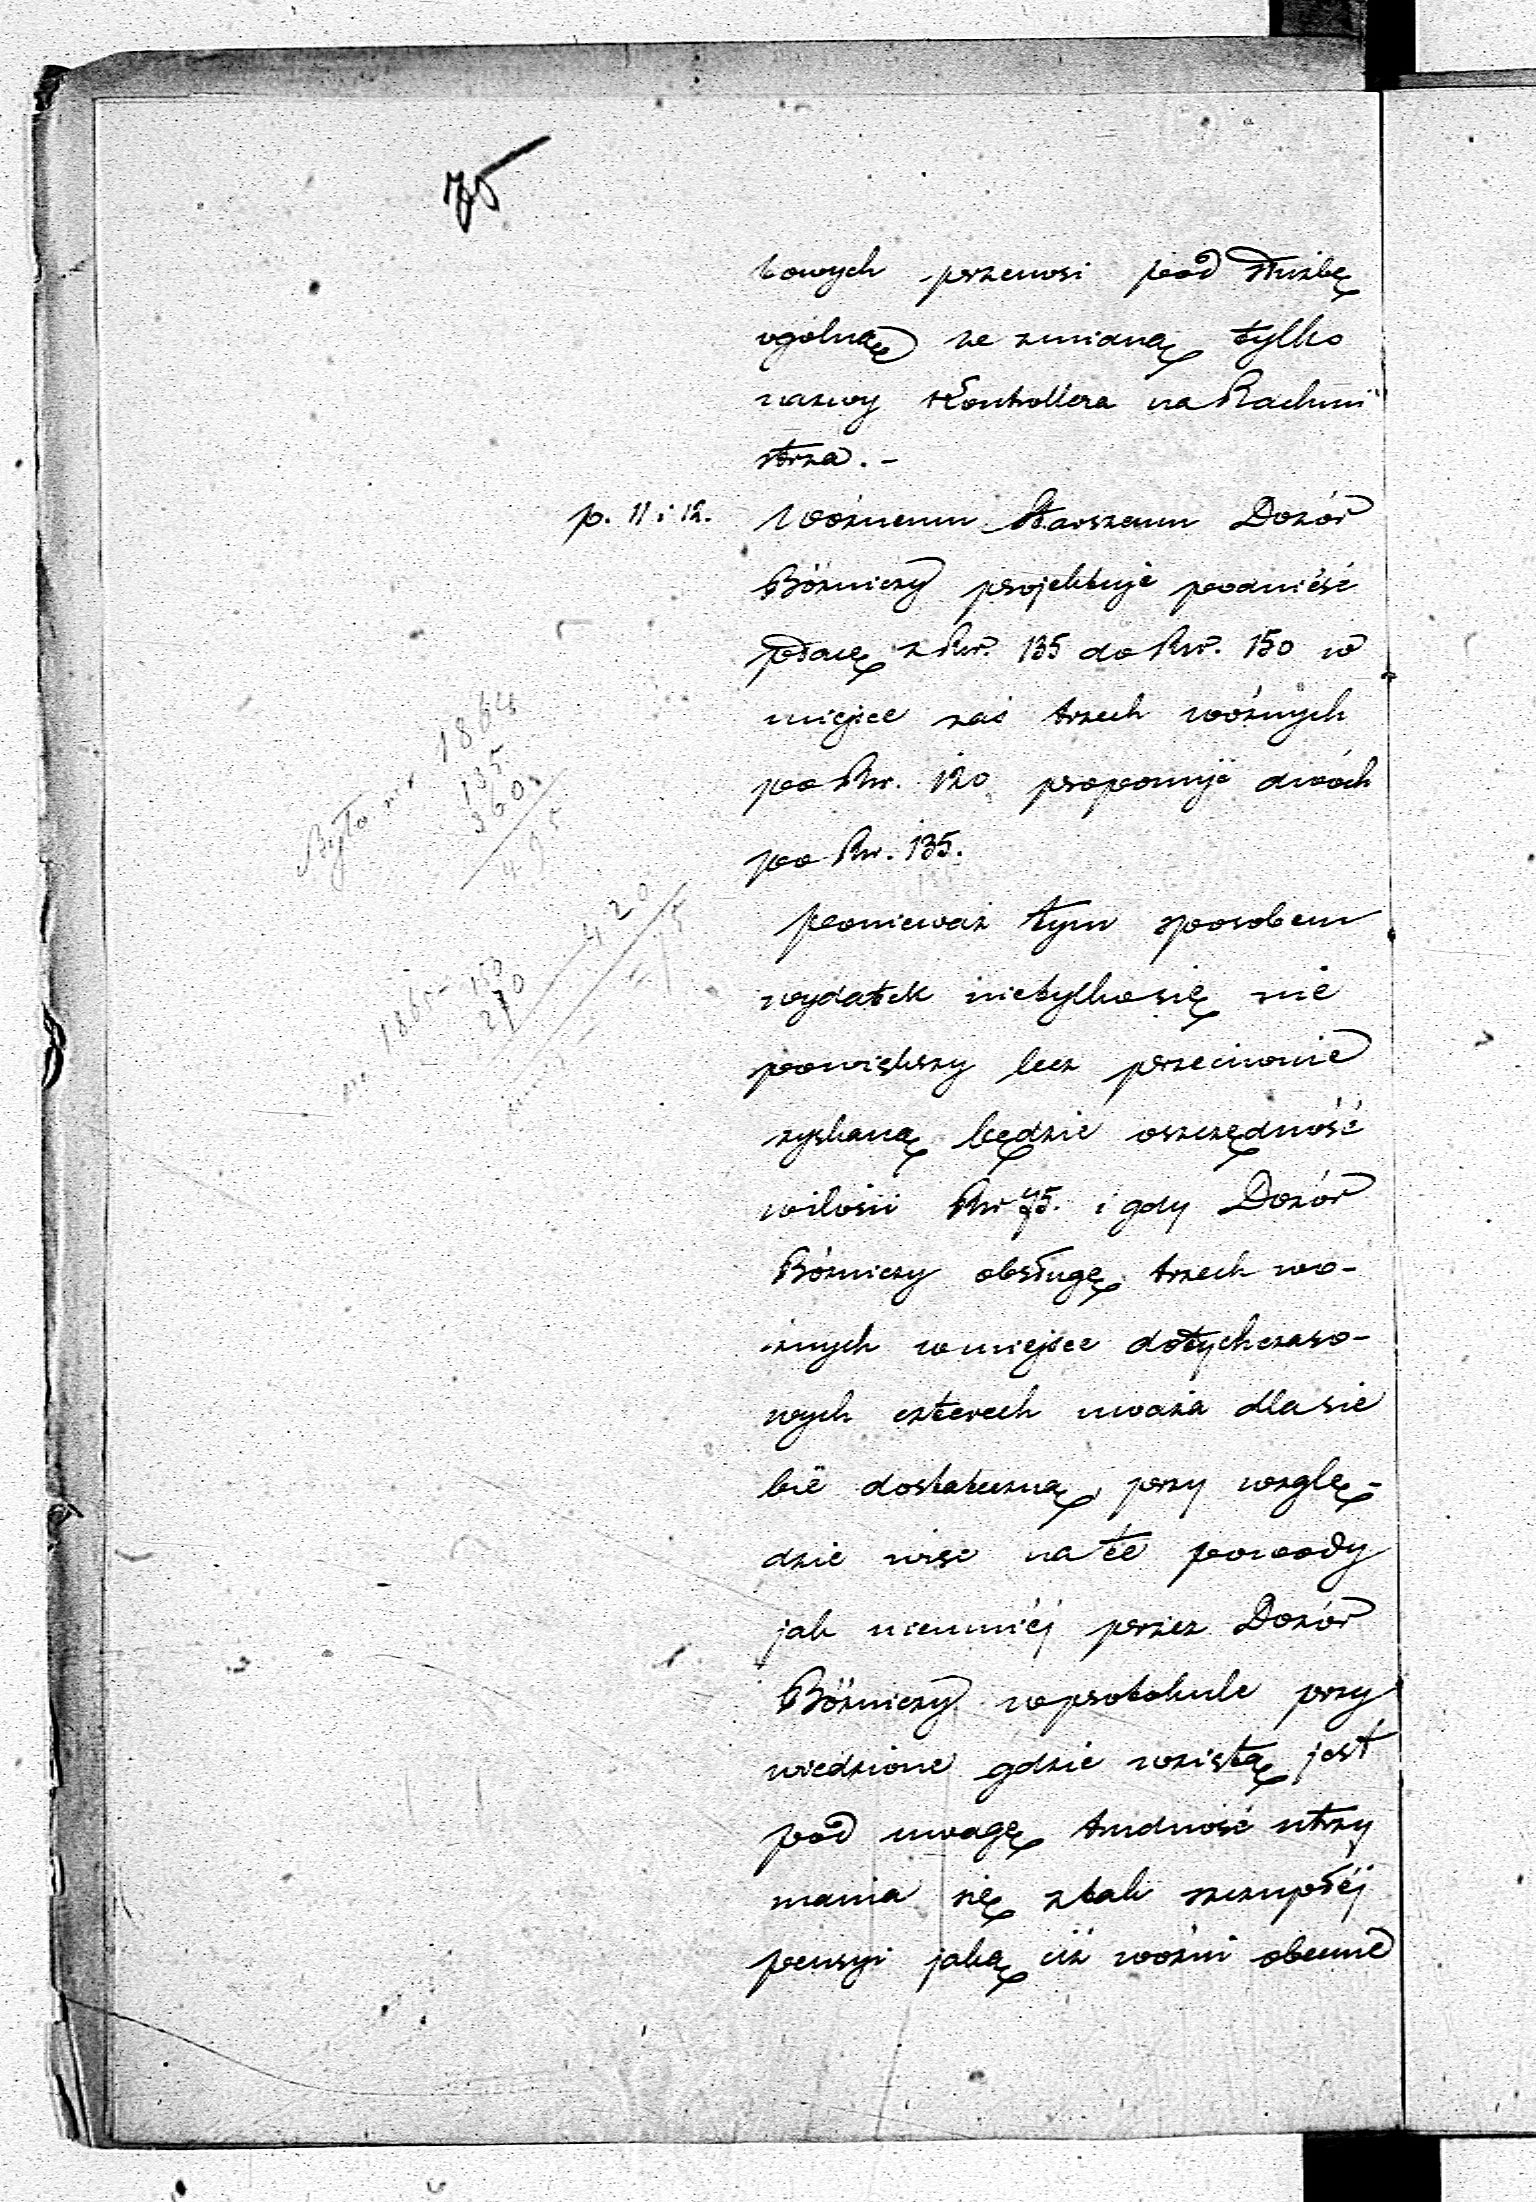 75
towych przenosi pod służbę
ogólną ze zmianą tylko
nazwy Kontrollera na Rachmi
strza. -
p. 11 i 12. Woźnemu Starszemu Dozór
Bóźniczy projektuje podnieść
płacę z Rsr. 135 do Rsr. 150 w
miejsce zaś trzech woźnych
po Rsr. 120 proponuje dwóch
po Rsr. 135.
ponieważ tym sposobem
wydatek nietylko się nie
powiększy lecz przeciwnie
zyskaną będzie oszczędność
wilości Rsr 75. i gdy Dozór
Bóźniczy obsługę trzech wo-
źnych w miejsce dotychczaso-
wych czterech uważa dla sie
bie dostateczną, przy wzglę-
dzie więc na te powody
jak niemniéj przez Dozór
Bóźniczy w protokule przy
wiedzione gdzie wziętą jest
pod uwagę trudność utrzy
mania się z tak szczupłéj
pensyi jaką ciż woźni obecnie
Było 1864
135
360
495
1865 - 150
270
420
75